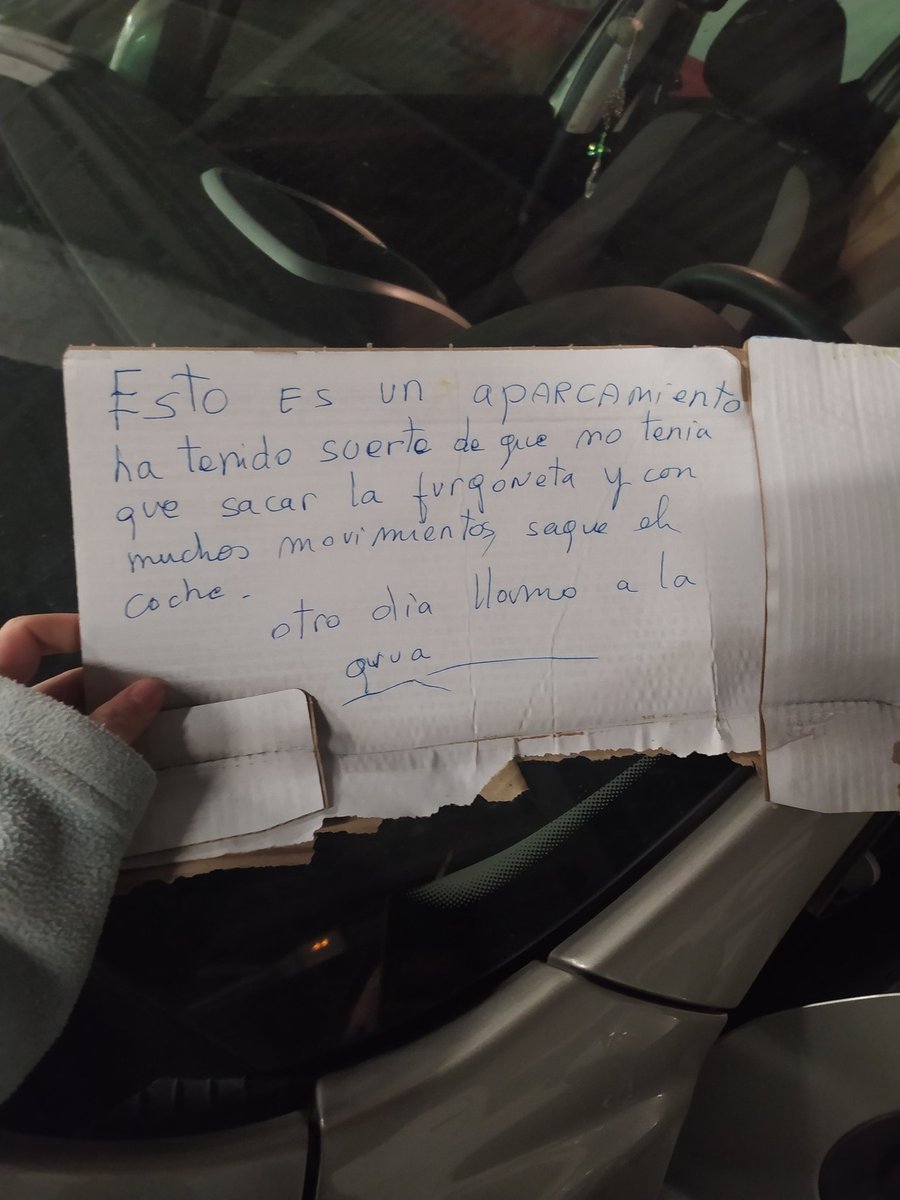 Esto ES un APARCAmiento
ha tenido suerte de que no tenia
que sacar la furgoneta y con
muchos movimientos saque el
coche.
otro dia llamo a la
grua